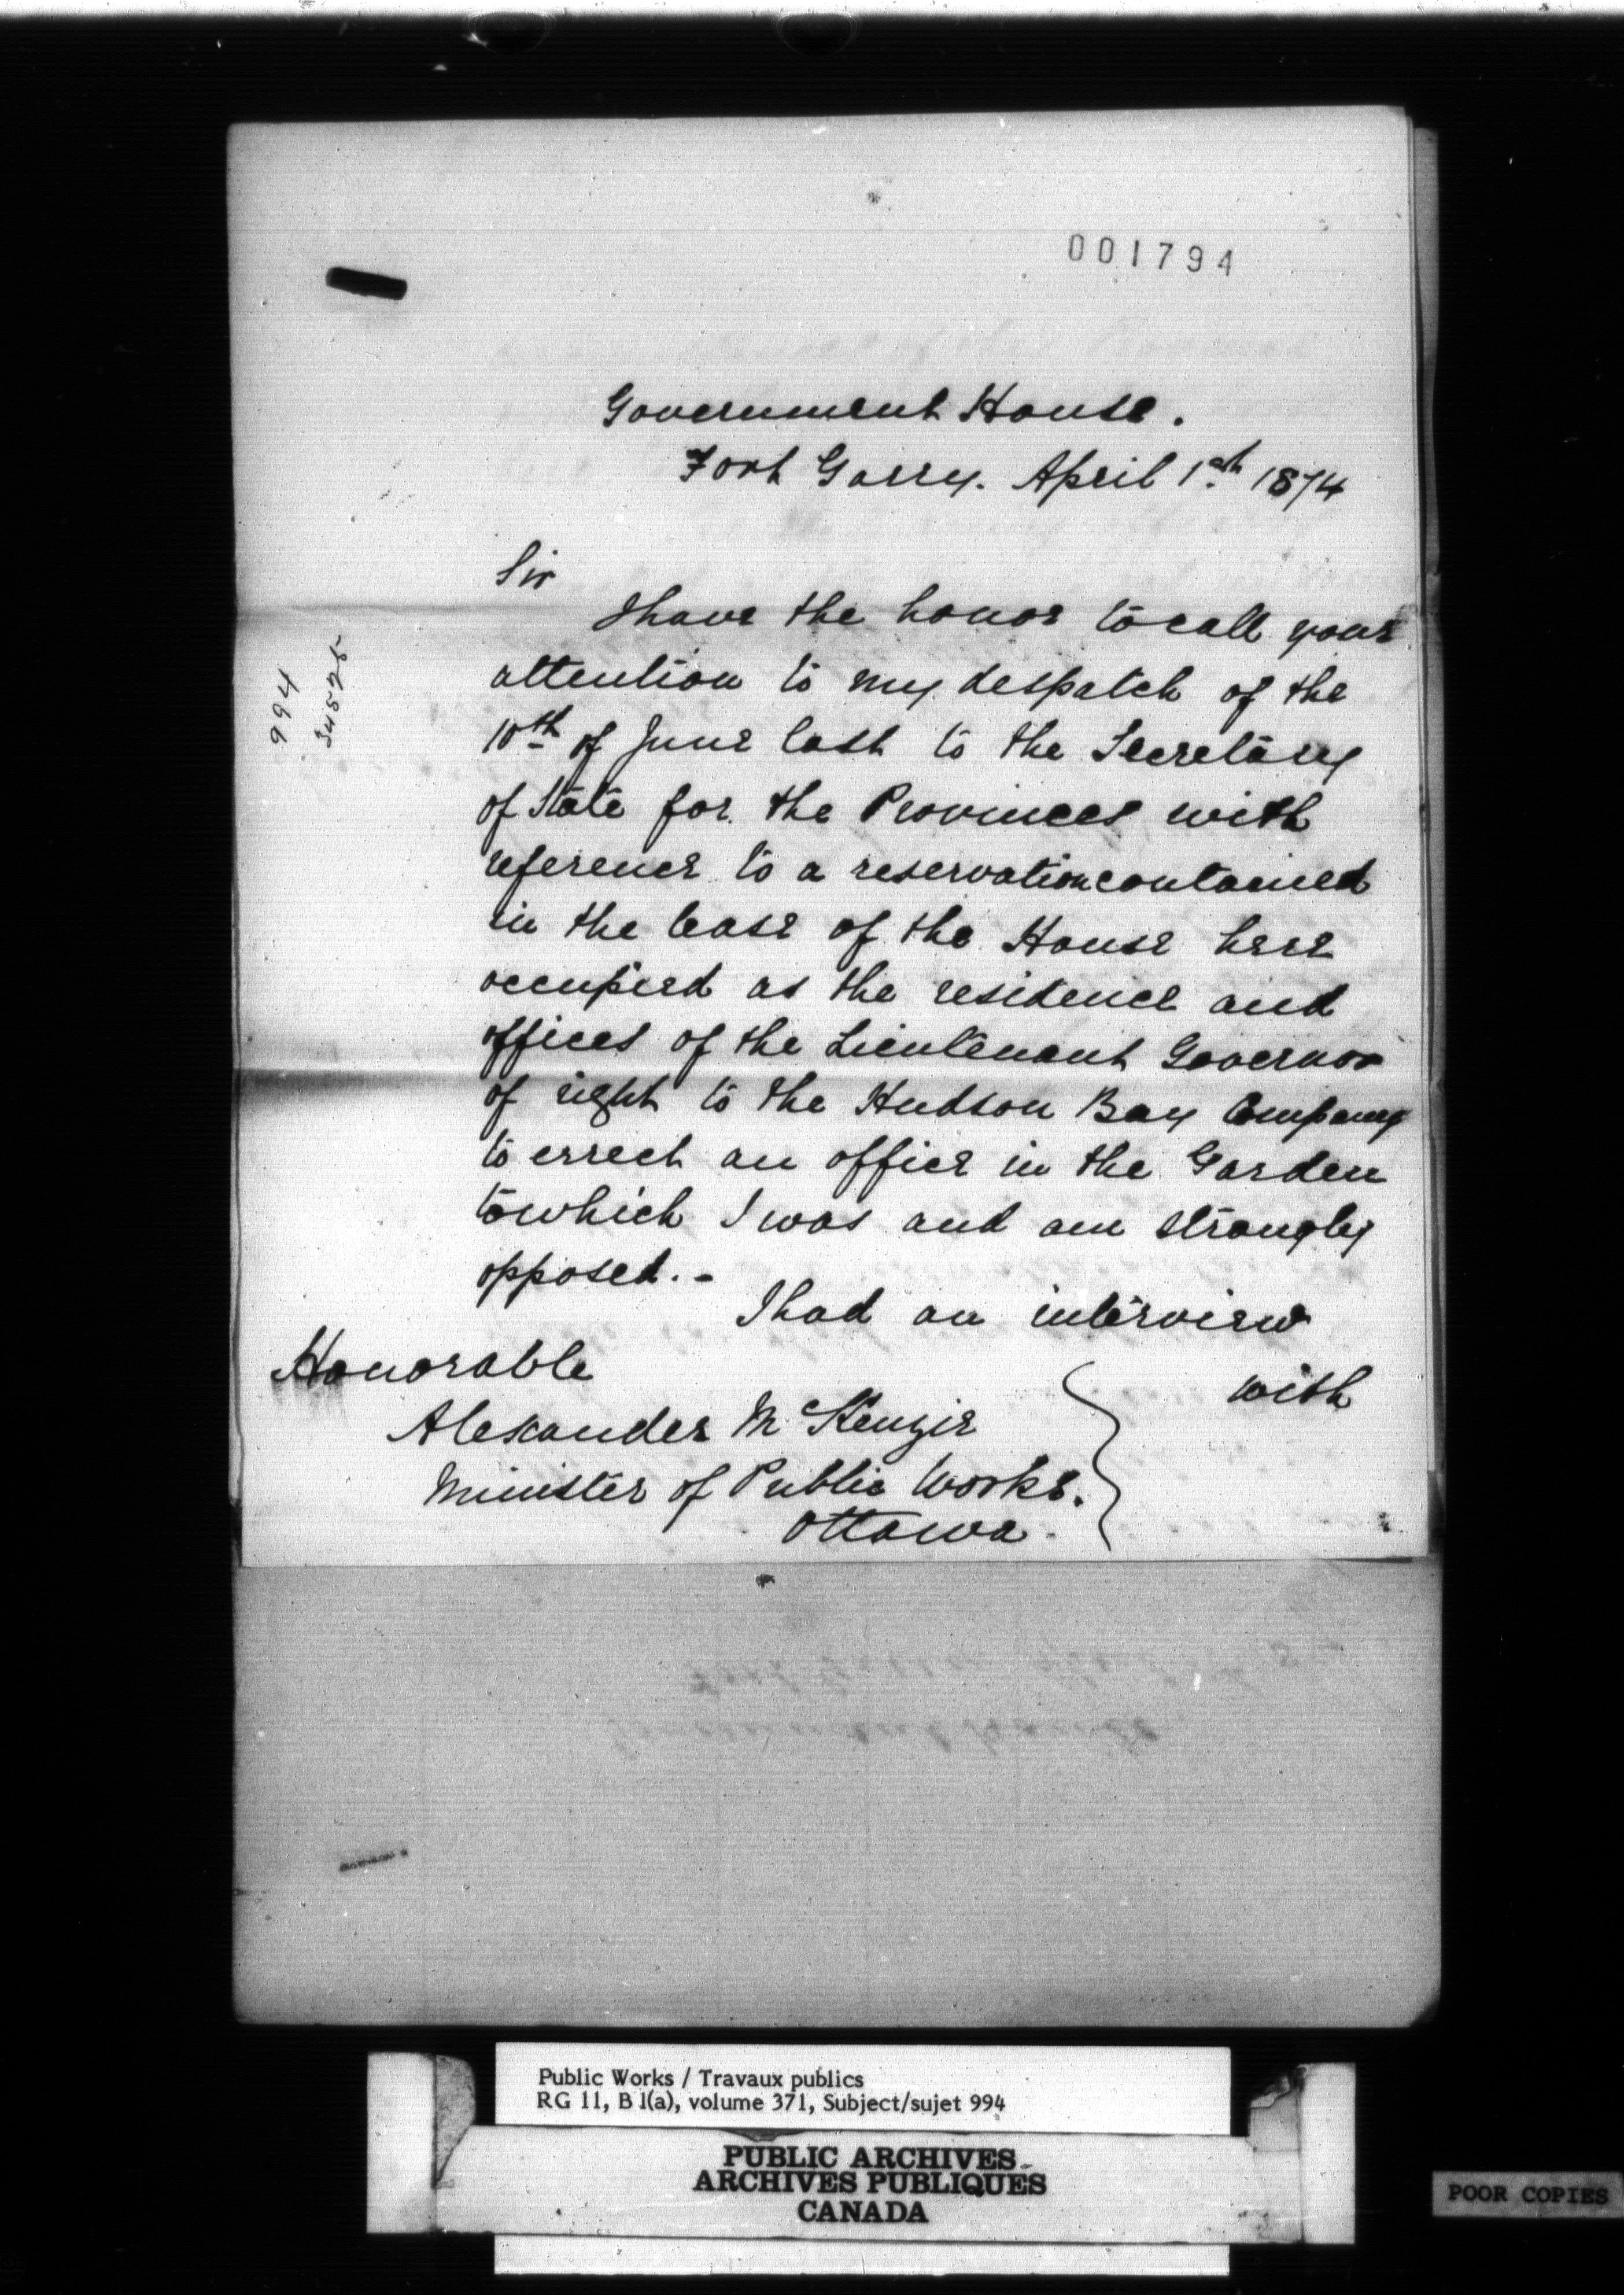 001794
Government House.
Fort Garry. April 1st 1874
Sir
I have the honor to call your
attention to my despatch of the
10th of June last to the Secretary
of State for the Provinces with
reference to a reservation contained
in the lease of the House here
occupied as the residence and
offices of the Lieutenant Governor
of right to the Hudson Bay Company
to errect an office in the Garden
to which I was and am strongly
opposed.-
I had an interview
with
Honorable
Alexander McKenzie
Minister of Public Works.
Ottawa.
994
34525
Public Works / Travaux publics
RG 11, B 1(a), volume 371, Subject/sujet 994
PUBLIC ARCHIVES
ARCHIVES PUBLIQUES
CANADA
POOR COPIES